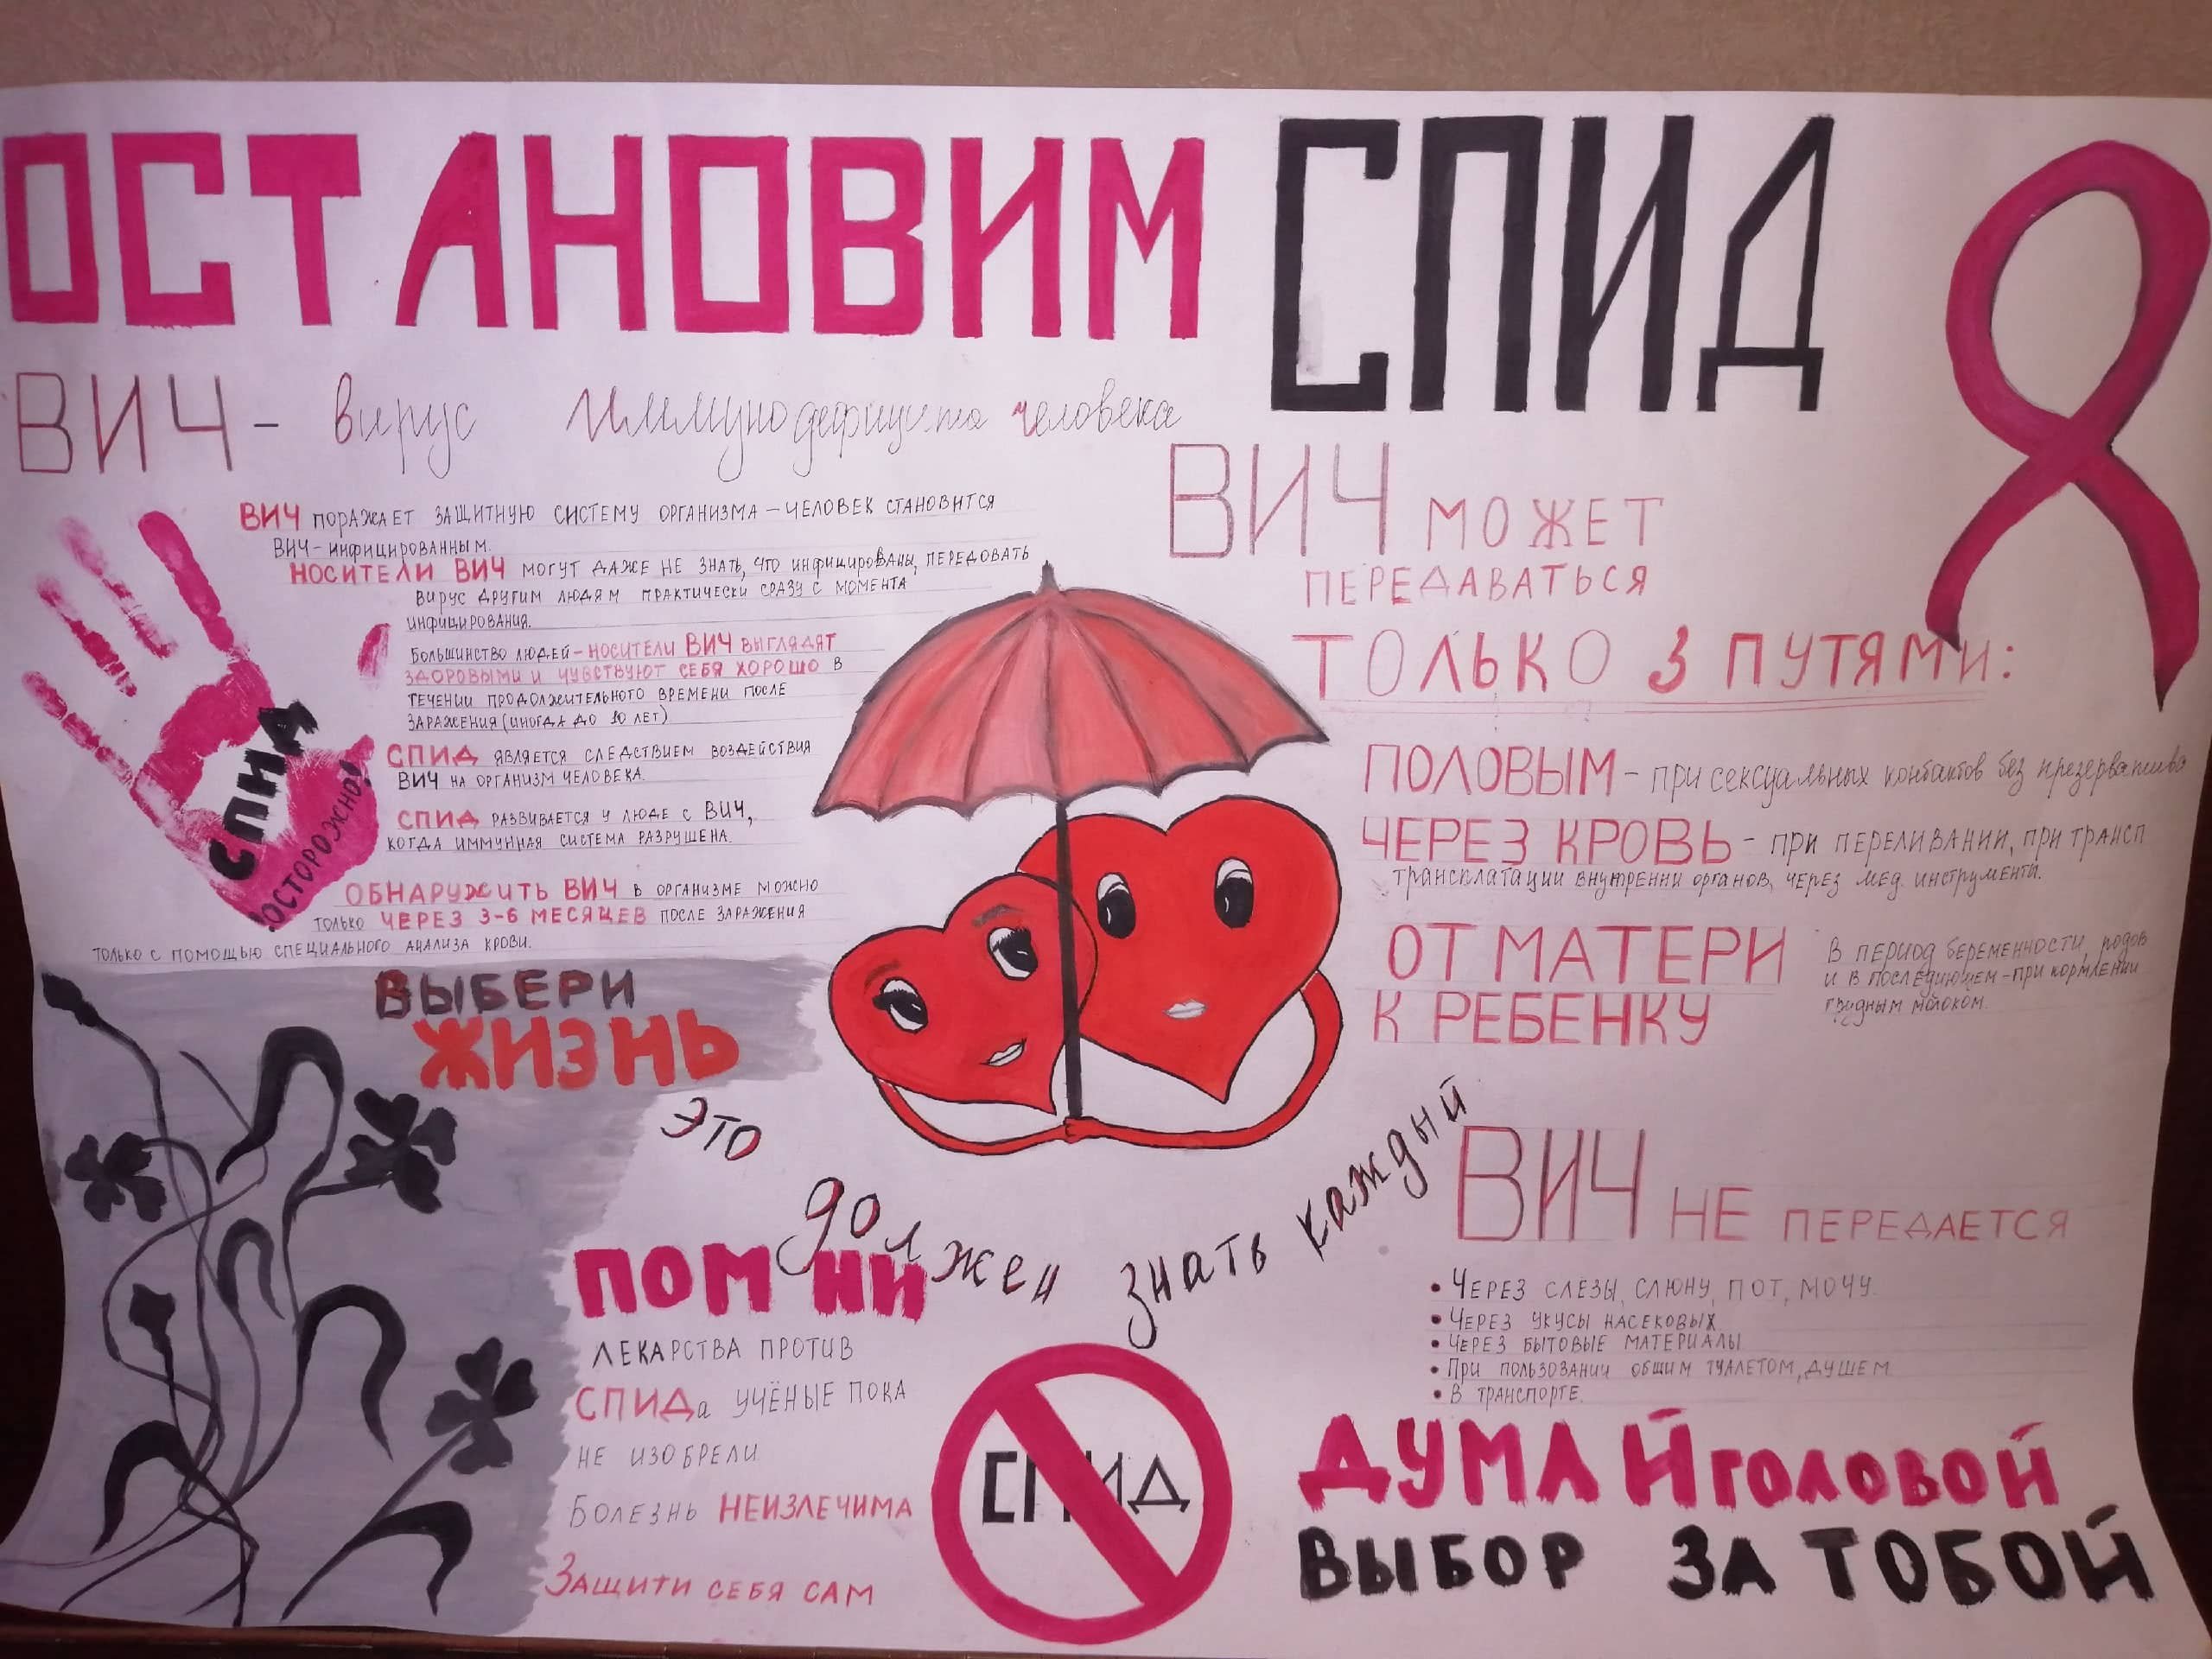 ОСТАНОВИМ СПИД
ВИЧ - вирус иммунодефицита человека
ВИЧ ПОРАЖАЕТ ЗАЩИТНУЮ СИСТЕМУ ОРГАНИЗМА – ЧЕЛОВЕК СТАНОВИТСЯ
ВИЧ-ИНФИЦИРОВАННЫМ.
НОСИТЕЛИ ВИЧ МОГУТ ДАЖЕ НЕ ЗНАТЬ, ЧТО ИНФИЦИРОВАНЫ, ПЕРЕДОВАТЬ
ВИРУС ДРУГИМ ЛЮДЯМ ПРАКТИЧЕСКИ СРАЗУ С МОМЕНТА
ИНФИЦИРОВАНИЯ.
БОЛЬШИНСТВО ЛЮДЕЙ - НОСИТЕЛИ ВИЧ ВЫГЛЯДЯТ
ЗДОРОВЫМИ И ЧУВСТВУЮТ СЕБЯ ХОРОШО В
ТЕЧЕНИИ ПРОДОЛЖИТЕЛЬНОГО ВРЕМЕНИ ПОСЛЕ
ЗАРАЖЕНИЯ (ИНОГДА ДО 10 ЛЕТ)
СПИД ЯВЛЯЕТСЯ СЛЕДСТВИЕМ ВОЗДЕЙСТВИЯ
ВИЧ НА ОРГАНИЗМ ЧЕЛОВЕКА.
СПИД РАЗВИВАЕТСЯ У ЛЮДЕ С ВИЧ,
КОГДА ИММУННАЯ СИСТЕМА РАЗРУШЕНА.
ОБНАРУЖИТЬ ВИЧ В ОРГАНИЗМЕ МОЖНО
ТОЛЬКО ЧЕРЕЗ 3-6 МЕСЯЦЕВ ПОСЛЕ ЗАРАЖЕНИЯ
ТОЛЬКО С ПОМОЩЬЮ СПЕЦИАЛЬНОГО АНАЛИЗА КРОВИ.
СПИД
!ОСТОРОЖНО!
ВЫБЕРИ
ЖИЗНЬ
ЭТО должен знать каждый
ПОМНИ
ЛЕКАРСТВА ПРОТИВ
СПИДа УЧЁНЫЕ ПОКА
НЕ ИЗОБРЕЛИ
БОЛЕЗНЬ НЕИЗЛЕЧИМА
ЗАЩИТИ СЕБЯ САМ
СПИД
ВИЧ МОЖЕТ
ПЕРЕДАВАТЬСЯ
ТОЛЬКО 3 ПУТЯМИ:
ПОЛОВЫМ - при сексуальных контактов без презерватива
ЧЕРЕЗ КРОВЬ - ПРИ ПЕРЕЛИВАНИИ, ПРИ ТРАНСП
ТРАНСПЛАТАЦИИ ВНУТРЕННИ ОРГАНОВ, ЧЕРЕЗ МЕД. ИНСТРУМЕНТА.
ОТ МАТЕРИ
К РЕБЕНКУ
В ПЕРИОД БЕРЕМЕННОСТИ, РОДОВ
И В ПОСЛЕДУЮЩЕМ - ПРИ КОРМЛЕНИИ
ГРУДНЫМ МОЛОКОМ.
ВИЧ НЕ ПЕРЕДАЕТСЯ
• ЧЕРЕЗ СЛЕЗЫ, СЛЮНУ, ПОТ, МОЧУ.
• ЧЕРЕЗ УКУСЫ НАСЕКОВЫХ
• ЧЕРЕЗ БЫТОВЫЕ МАТЕРИАЛЫ
• ПРИ ПОЛЬЗОВАНИИ ОБЩИМ ТУАЛЕТОМ, ДУШЕМ
• В ТРАНСПОРТЕ.
ДУМАЙ ГОЛОВОЙ
ВЫБОР ЗА ТОБОЙ